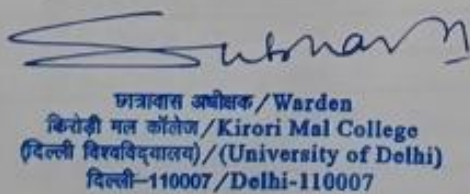 छात्रावास अधीक्षक/Warden
किरोड़ी मल कॉलेज/Kirori Mal College
(दिल्ली विश्वविद्यालय)/(University of Delhi)
दिल्ली–110007/Delhi-110007